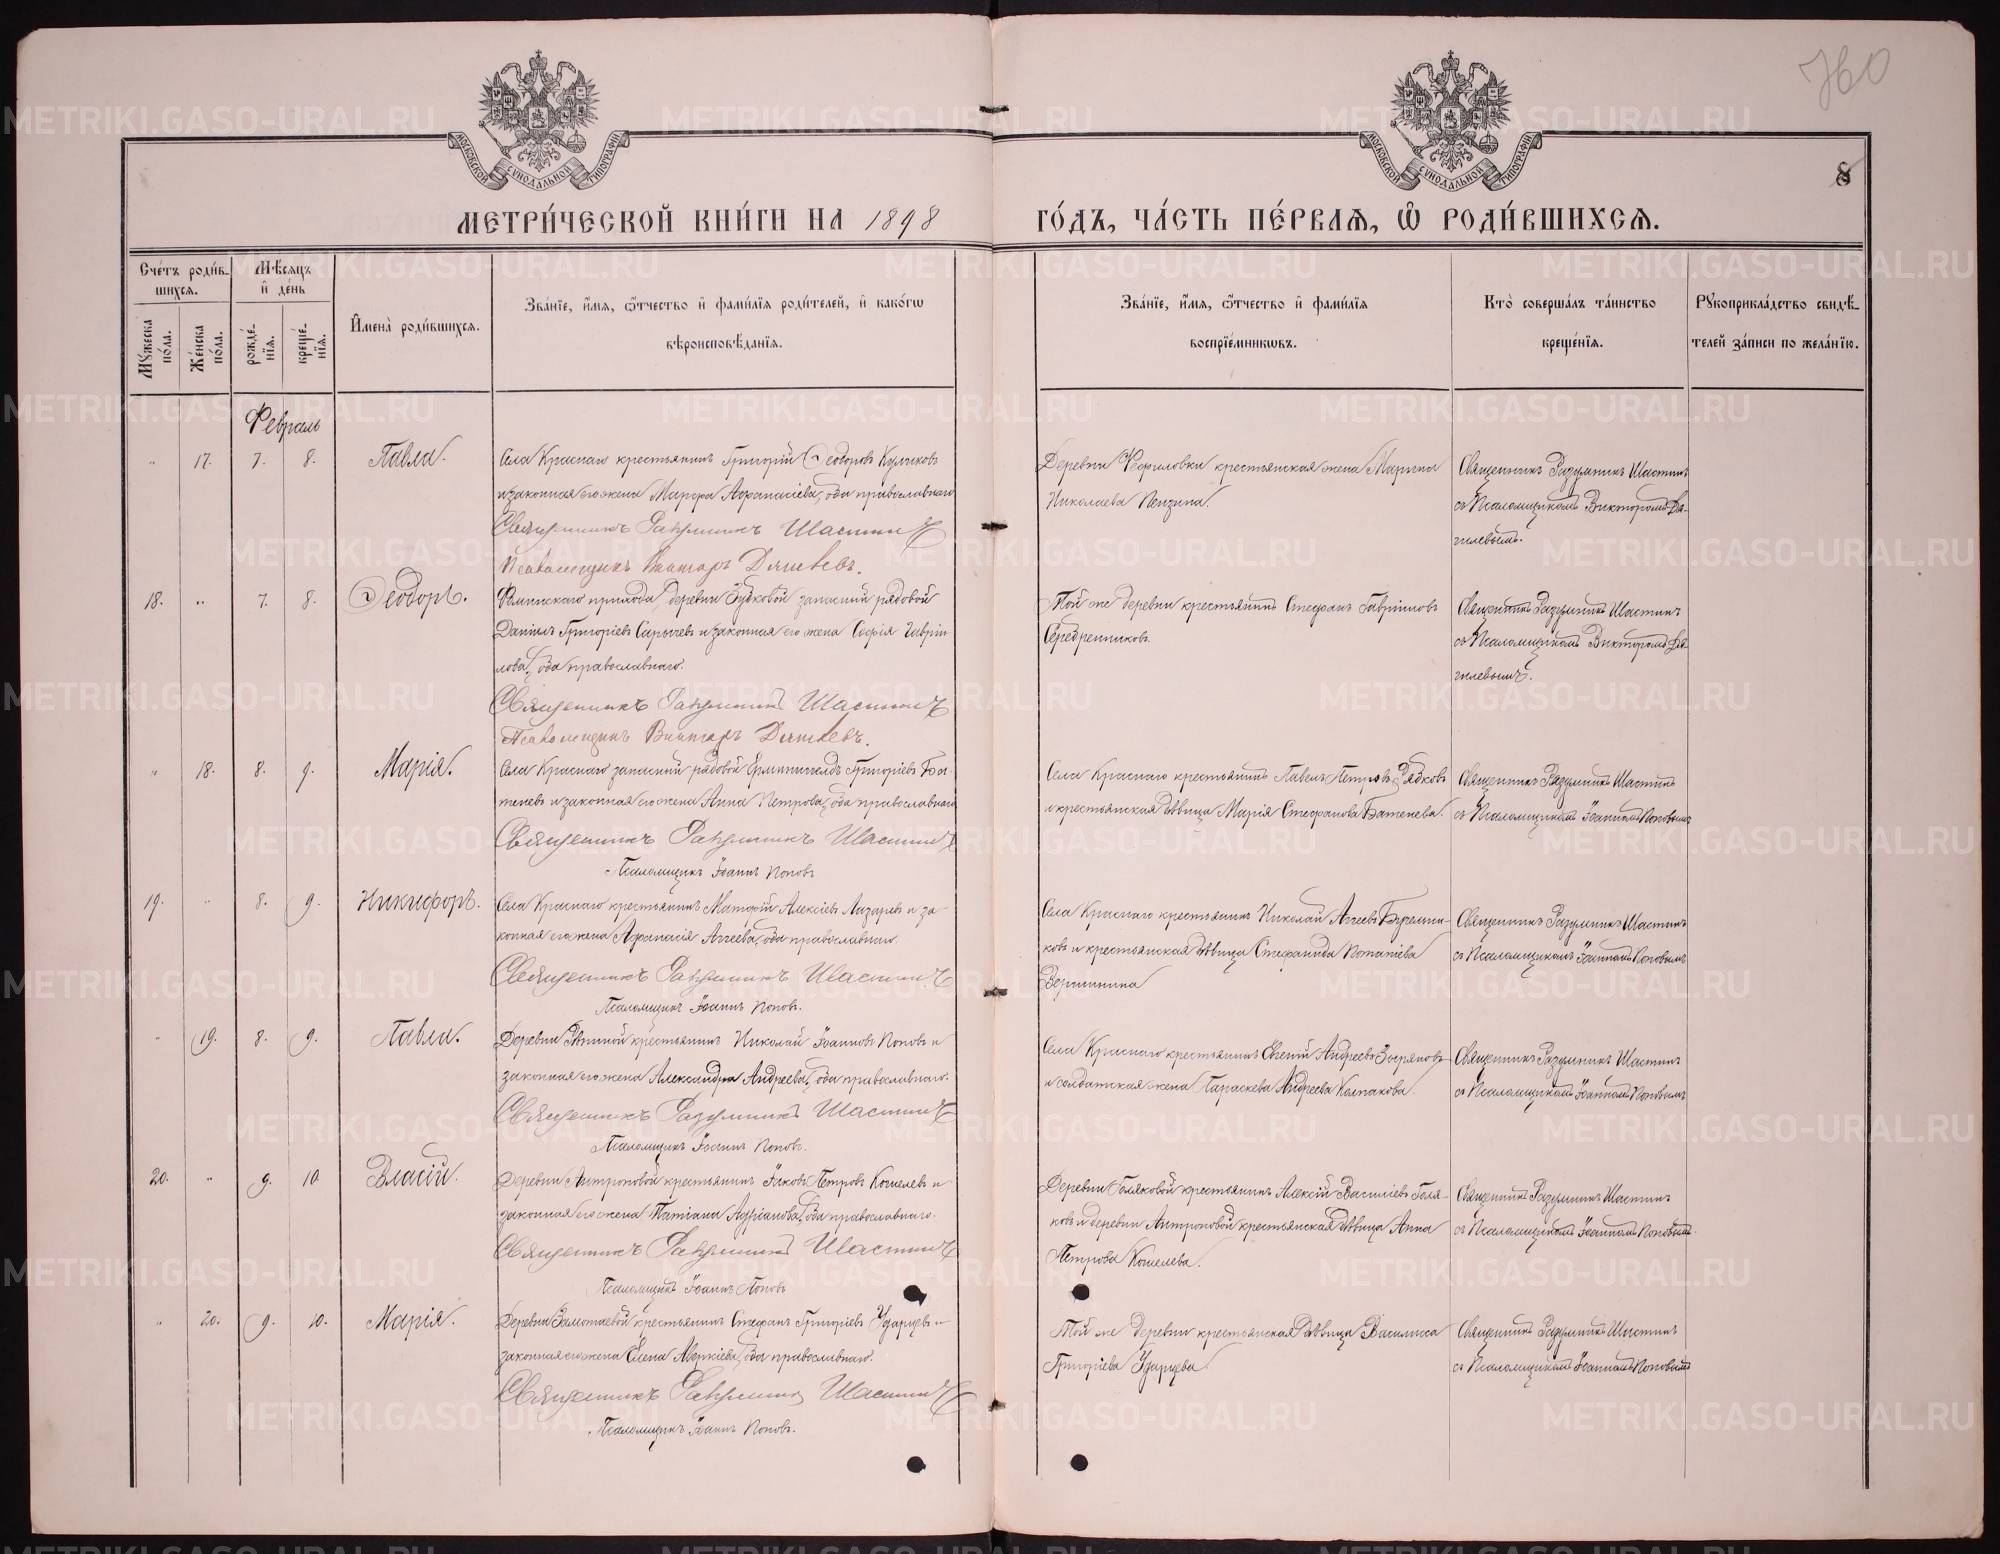 760
8
МЕТРИ́ЧЕСКОЙ КНИ́ГИ НА 1898 ГО́ДЪ, ЧА́СТЬ ПЕ́РВАЯ, Ѡ РОДИ́ВШИХСЯ.
Сче́тъ роди́вшихся.
Мꙋжеска по́ла.
Же́нска по́ла.
Мѣ́сяцъ и҆ де́нь
рожде́нїя.
креще́нїя.
И҆мена̀ роди́вшихся.
Зва́нїе, и҆́мя, ѻ҆́тчество и҆ фами́лїя роди́телей, и҆ како́гѡ вѣроисповѣ́данїя.
Зва́нїе, и҆́мя, ѻ҆́тчество и҆ фами́лїя воспрїе́мникѡвъ.
Кто̀ соверша́лъ та́инство креще́нїя.
Рꙋкоприкла́дство свидѣ́телей за́писи по жела́нїю.
Февраль
17. 7. 8. Павла.
Села Краснаго крестьянинъ Григорій Ѳеодоровъ Куликовъ
и законная его жена Марѳа Аѳанасіева, оба православнаго
Священникъ Разумникъ Шастинъ
Псаломщикъ Викторъ Дягилевъ.
крестьянская жена Марина
Николаева Пензина.
Священникъ Разумникъ Шастинъ
съ Псаломщикомъ Викторомъ Дягилевымъ.
18. 7. 8. Ѳеодоръ.
прихода, деревни Зубковой запасный рядовой
Даніилъ Григоріевъ Сарычевъ и законная его жена Софія Гавріилова, оба православнаго.
Священникъ Разумникъ Шастинъ
Псаломщикъ Викторъ Дягилевъ.
Той же деревни крестьянинъ Стефанъ Гавріиловъ
Серебренниковъ.
Священникъ Разумникъ Шастинъ
съ Псаломщикомъ Викторомъ Дягилевымъ.
18. 8. 9. Марія.
Села Краснаго запасный рядовой Ерминингелдъ Григоріевъ Батеневъ и законная его жена Анна Петрова, оба православнаго
Священникъ Разумникъ Шастинъ
Псаломщикъ Іоаннъ Поповъ
Села Краснаго крестьянинъ Павелъ Петровъ
и крестьянская дѣвица Марія Стефанова Батенева.
Священникъ Разумникъ Шастинъ
съ Псаломщикомъ Іоанномъ Поповымъ
19. 8. 9. Никифоръ.
Села Краснаго крестьянинъ Алексіевъ Лазаревъ и законная его жена Аѳанасія Аггеева, оба православнаго.
Священникъ Разумникъ Шастинъ
Псаломщикъ Іоаннъ Поповъ.
Села Краснаго крестьянинъ Николай Аггеевъ
и крестьянская дѣвица Стефанида
Вершинина
Священникъ Разумникъ Шастинъ
съ Псаломщикомъ Іоанномъ Поповымъ
19. 8. 9. Павла.
Деревни Рѣпиной крестьянинъ Николай Іоанновъ Поповъ и
законная его жена Александра Андреева, оба православнаго.
Священникъ Разумникъ Шастинъ
Псаломщикъ Іоаннъ Поповъ.
Села Краснаго крестьянинъ Евгеній Андреевъ Зыряновъ
и солдатская жена Параскева Андреева Колпакова.
Священникъ Разумникъ Шастинъ
съ Псаломщикомъ Іоанномъ Поповымъ
20. 9. 10. Власій.
Деревни Антроповой крестьянинъ Іаковъ Петровъ Кошелевъ и
законная его жена Татіана Адріанова, оба православнаго.
Священникъ Разумникъ Шастинъ
Псаломщикъ Іоаннъ Поповъ
Деревни Голяковой крестьянинъ Алексій Василіевъ Голяковъ и деревни Антроповой крестьянская дѣвица Анна
Петрова Кошелева.
Священникъ Разумникъ Шастинъ
съ Псаломщикомъ Іоанномъ Поповымъ.
20. 9. 10. Марія.
Деревни Замотаевой крестьянинъ Стефанъ Григоріевъ Ударцевъ и
законная его жена Елена Маркіева, оба православнаго.
Священникъ Разумникъ Шастинъ
Псаломщикъ Іоаннъ Поповъ.
Той же деревни крестьянская дѣвица Василиса
Григоріева Ударцева.
Священникъ Разумникъ Шастинъ
съ Псаломщикомъ Іоанномъ Поповымъ
METRIKI.GASO-URAL.RU